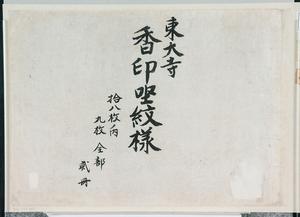 東大寺
香印坐紋様
拾八枚内
九枚 全部
貳冊